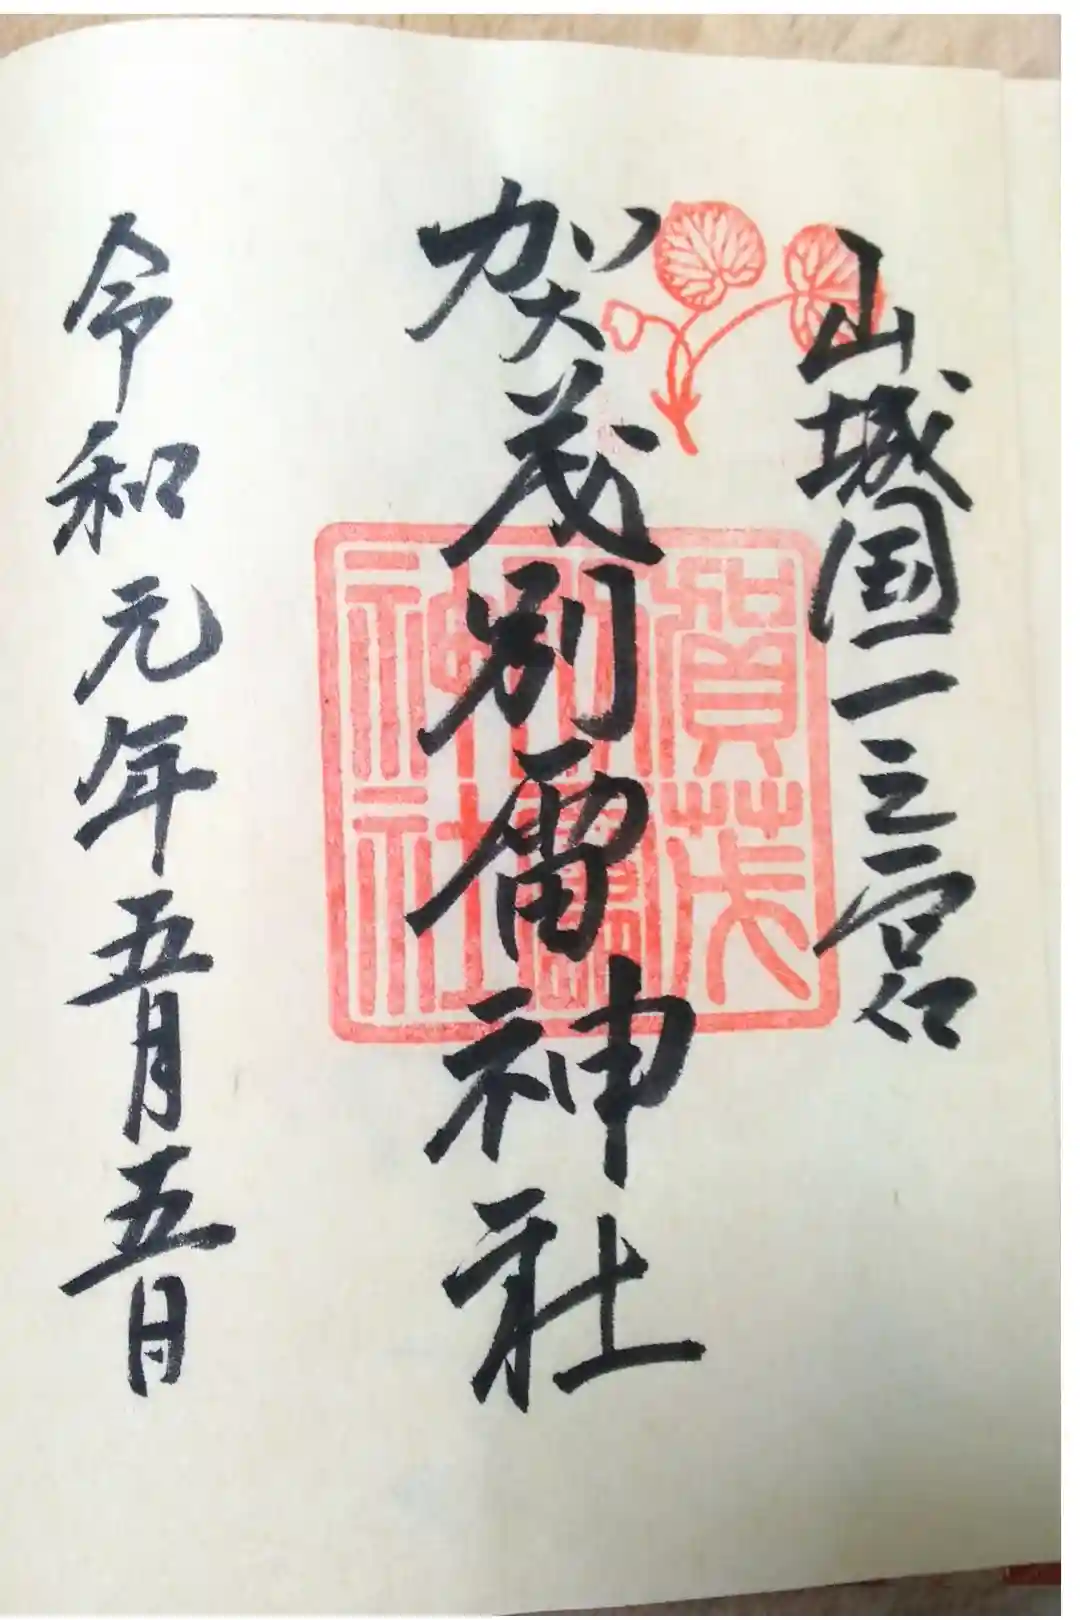 山城国一之宮
賀茂別雷神社
令和元年五月五日
賀茂
別雷
神社